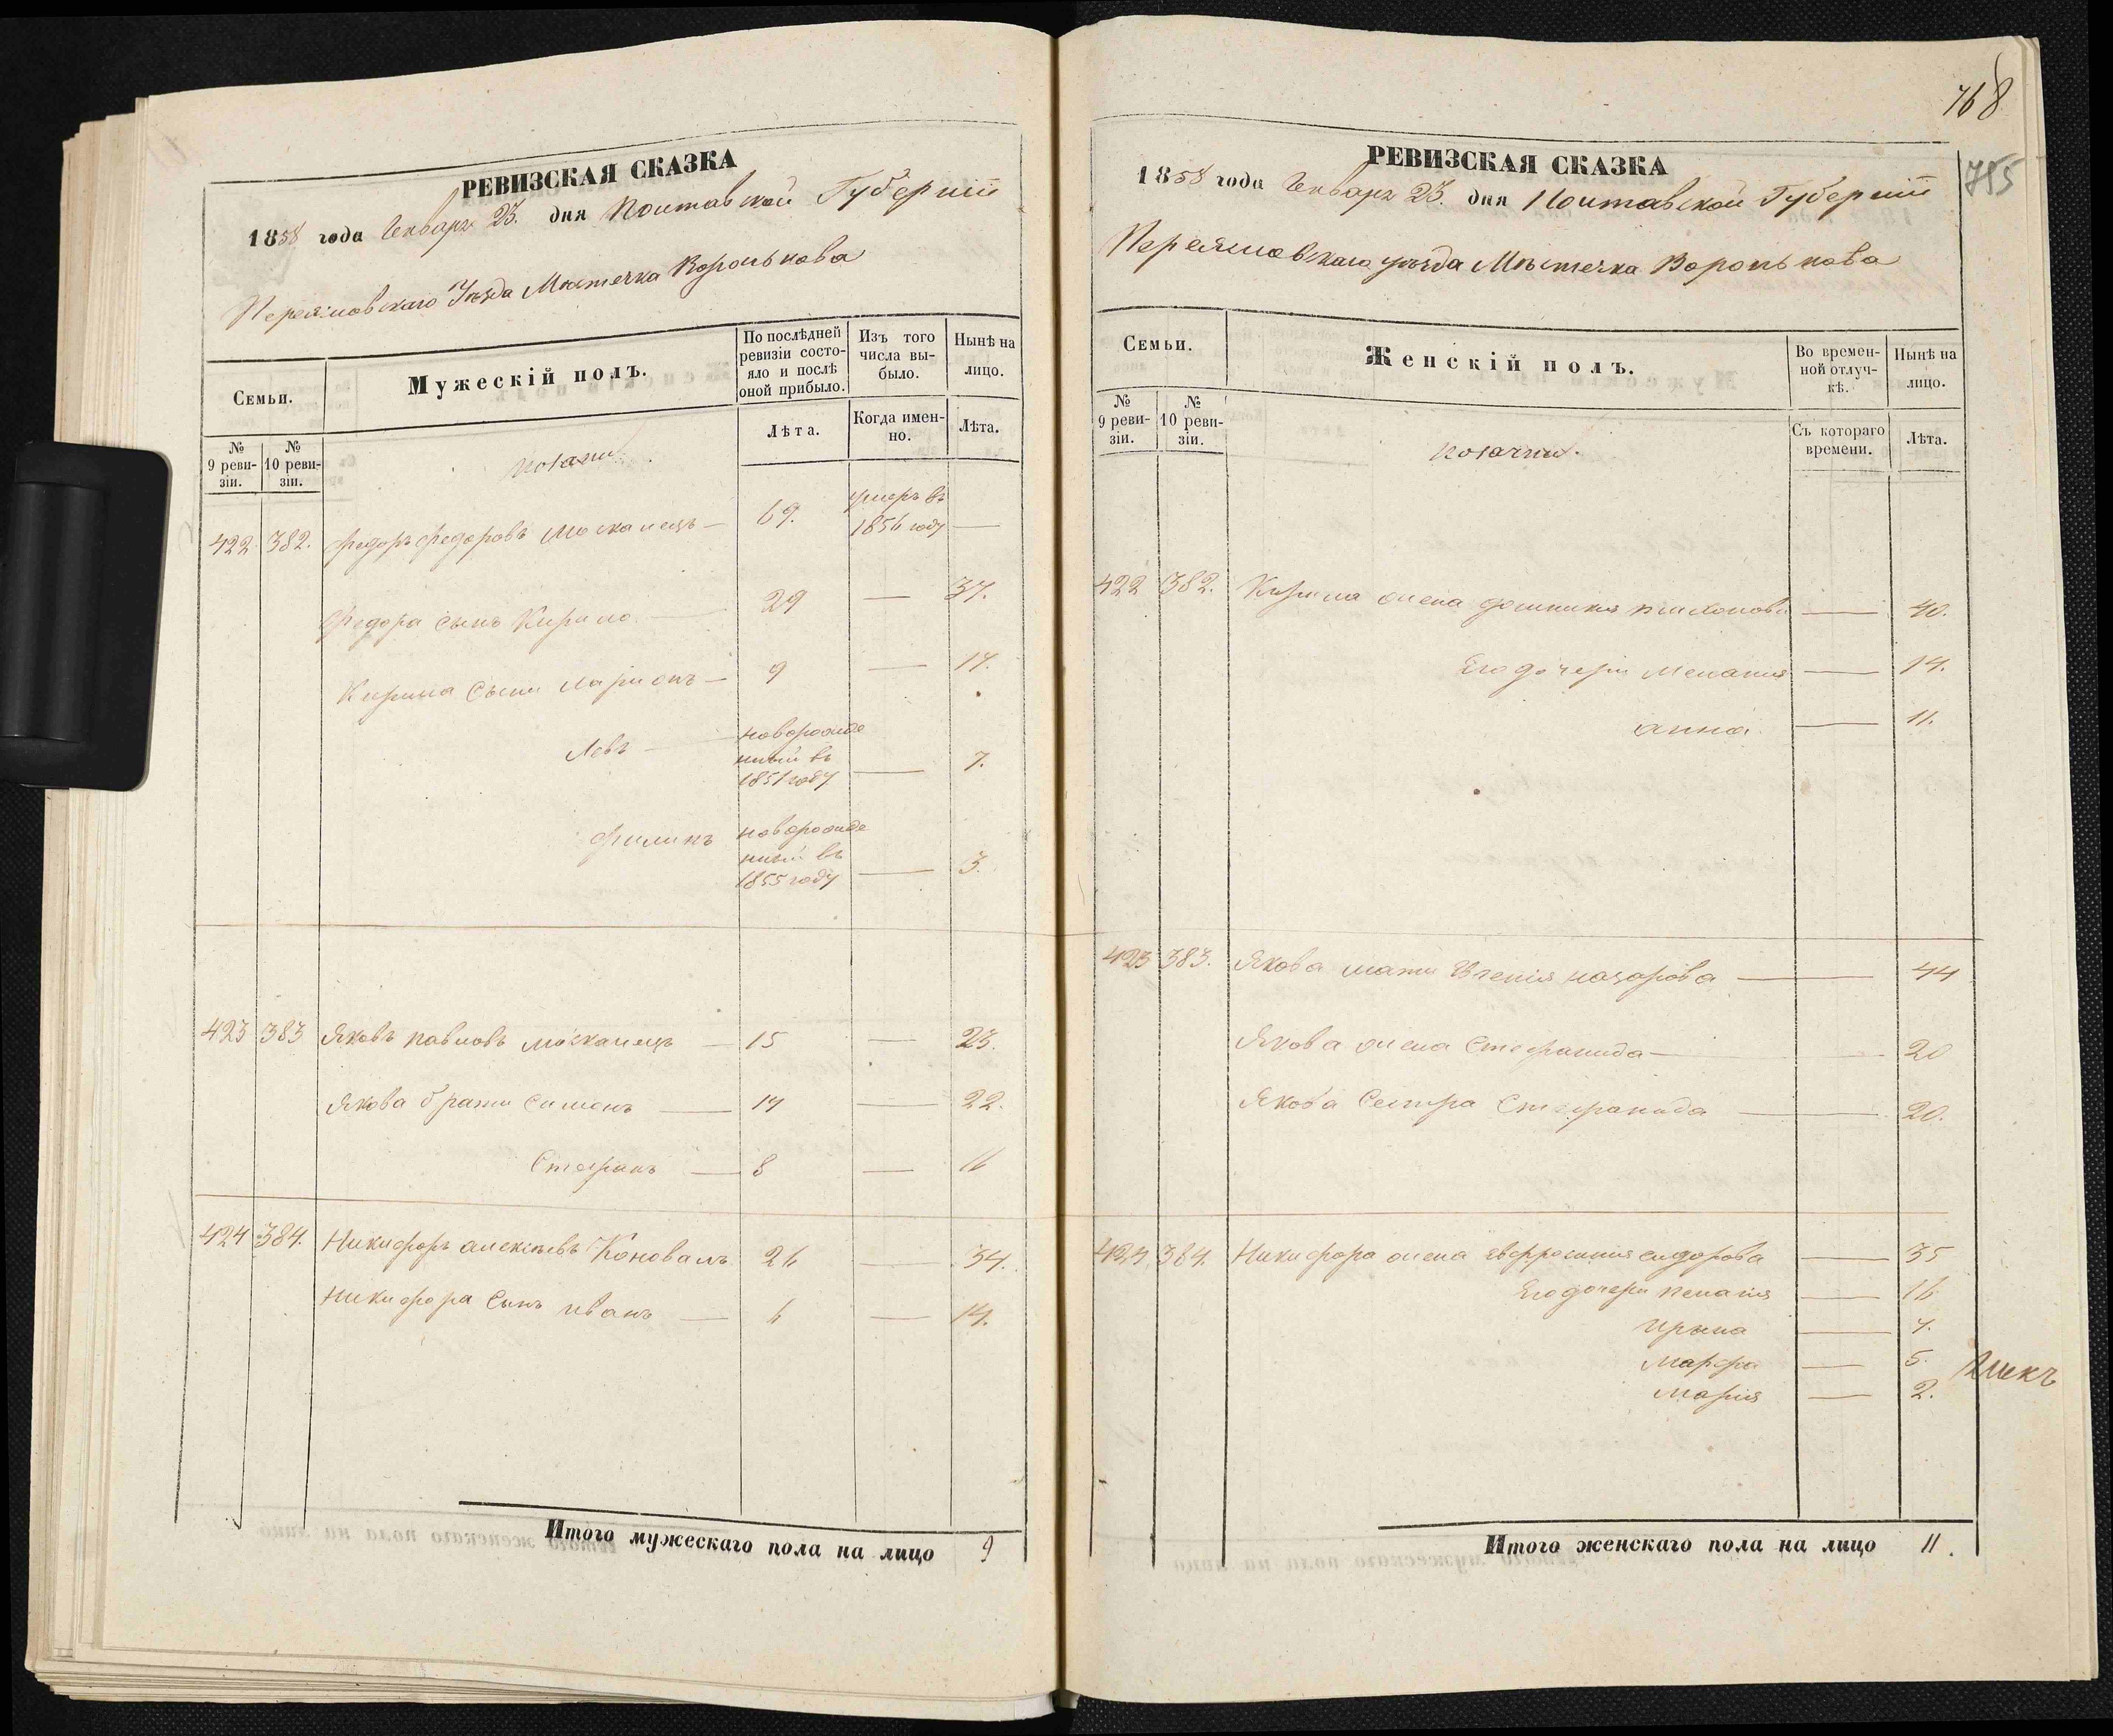 РЕВИЗСКАЯ СКАЗКА
1858 года Генваря 23. дня Полтавской Губерніи
Переяславскаго Уѣзда Мѣстечка Воронькова
Семьи.
Мужескій полъ.
По послѣдней ревизіи состояло и послѣ оной прибыло.
Изъ того числа выбыло.
Нынѣ на лицо.
№ 9 ревизіи.
№ 10 ревизіи.
Лѣта.
Когда именно.
Лѣта.
Козаки.
422 382. Федоръ Федоровъ Москалецъ — 69. умеръ въ 1856 году —
Федора сынъ Кирило — 29 — 37.
Кирила сыны Ларионъ — 9 — 17.
Левъ — новорожденный въ 1851 году — 7.
Филипъ новорожденный въ 1855 году — 3.
423 383 Яковъ Павловъ Москалецъ — 15 — 23.
Якова братья Симонъ — 14 — 22.
Стефанъ — 8 — 16
424 384. Никифоръ Алексѣевъ Коновалъ 26 — 34.
Никифора сынъ Иванъ — 6 — 14.
Итого мужескаго пола на лицо 9
768
755
РЕВИЗСКАЯ СКАЗКА
1858 года Генваря 23. дня Полтавской Губерніи
Переяславскаго уѣзда Мѣстечка Воронькова
Семьи.
Женскій полъ.
Во временной отлучкѣ.
Нынѣ на лицо.
№ 9 ревизіи.
№ 10 ревизіи.
Съ котораго времени.
Лѣта.
Козачки.
422 382. Кирила жена — 40.
Его дочери Меланія — 14.
Анна — 11.
423 383. Якова мати Евгенія Назарова — 44
Якова жена Стефанида — 20
Якова Сестра Стефанида — 20.
424 384. Никифора жена Евфросинія Сидорова — 35
Его дочери Пелагія — 16
Ирына — 7.
Марфа — 5.
Марія — 2.
Итого женскаго пола на лицо 11.